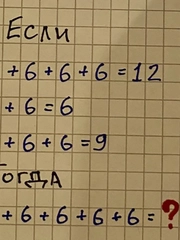 Если
+6+6+6=12
+6=6
+6+6=9
огда
+6+6+6+6=?